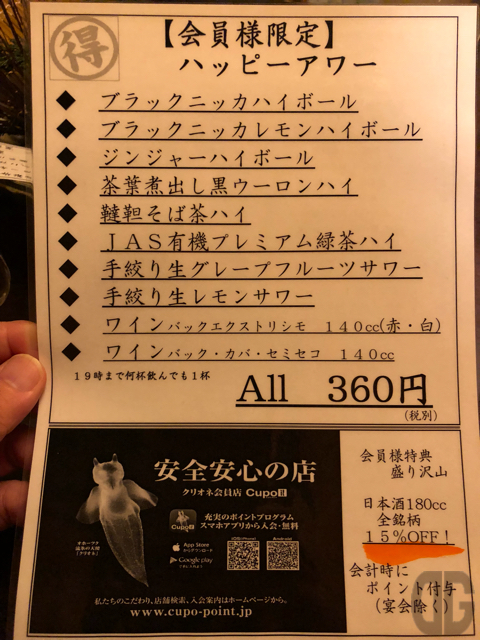 得
【会員様限定】
ハッピーアワー
◆ ブラックニッカハイボール
◆ ブラックニッカレモンハイボール
◆ ジンジャーハイボール
◆ 茶葉煮出し黒ウーロンハイ
◆ 韃靼そば茶ハイ
◆ JAS有機プレミアム緑茶ハイ
◆ 手絞り生グレープフルーツサワー
◆ 手絞り生レモンサワー
◆ ワインバックエクストリシモ 140cc(赤・白)
◆ ワインバック・カバ・セミセコ 140cc
19時まで何杯飲んでも1杯
All 360円
(税別)
安全安心の店
クリオネ会員店 Cupo
充実のポイントプログラム
スマホアプリから入会・無料
Cupo
App Store
からダウンロード
Google play
【iPhone】
【android】
オホーツク
流氷の天使
『クリオネ』
私たちのこだわり、店舗検索、入会案内はホームページから。
www.cupo-point.jp
会員様特典
盛り沢山
日本酒180cc
全銘柄
15%OFF!
会計時に
ポイント付与
(宴会除く)
DG